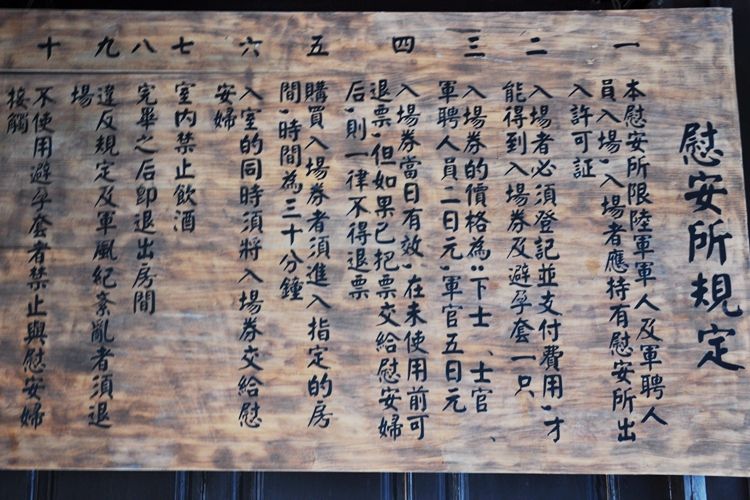 慰安所規定
一
本慰安所限陸軍軍人及軍聘人
員入場，入場者應持有慰安所出
入許可証
二
入場者必須登記並支付費用，才
能得到入場券及避孕套一只
三
入場券的價格為：下士、士官、
軍聘人員二日元，軍官五日元
四
入場券當日有效，在未使用前可
退票，但如果已把票交給慰安婦
后，則一律不得退票
五
購買入場券者須進入指定的房
間，時間為三十分鐘
六
入室的同時須將入場券交給慰
安婦
七
室內禁止飲酒
八
完畢之后即退出房間
九
違反規定及軍風紀紊亂者須退
場
十
不使用避孕套者禁止與慰安婦
接觸